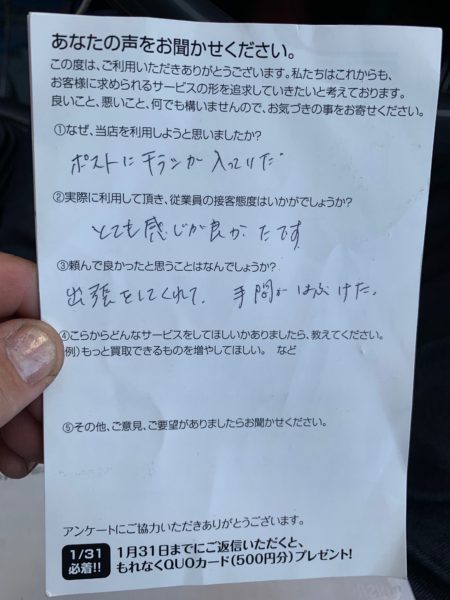 あなたの声をお聞かせください。
この度は、ご利用いただきありがとうございます。私たちはこれからも、
お客様に求められるサービスの形を追求していきたいと考えております。
良いこと、悪いこと、何でも構いませんので、お気づきの事をお寄せください。
①なぜ、当店を利用しようと思いましたか?
ポストにチラシが入っていた
②実際に利用して頂き、従業員の接客態度はいかがでしょうか?
とても感じが良かったです
③頼んで良かったと思うことはなんでしょうか?
出張をしてくれて、手間がはぶけた。
④こらからどんなサービスをしてほしいかありましたら、教えてください。
例)もっと買取できるものを増やしてほしい。 など
⑤その他、ご意見、ご要望がありましたらお聞かせください。
アンケートにご協力いただきありがとうございます。
1/31
必着!!
1月31日までにご返信いただくと、
もれなくQUOカード(500円分)プレゼント!